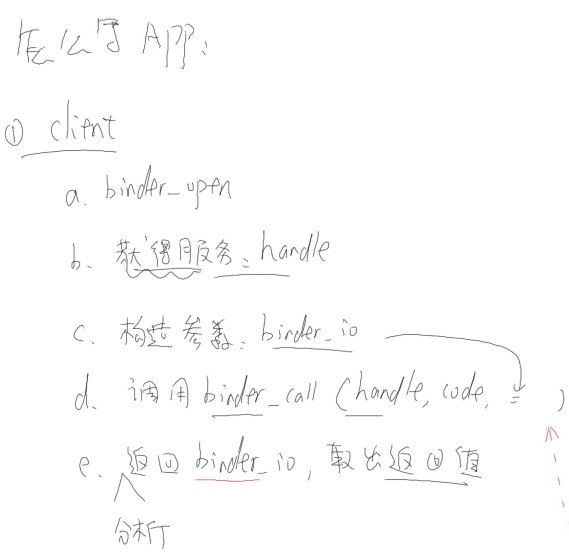 怎么写App:
① client
a. binder_open
b、获得服务: handle
c. 构造参数: binder_io
d. 调用 binder_call (handle, code, = )
e. 返回 binder_io, 取出返回值
分析